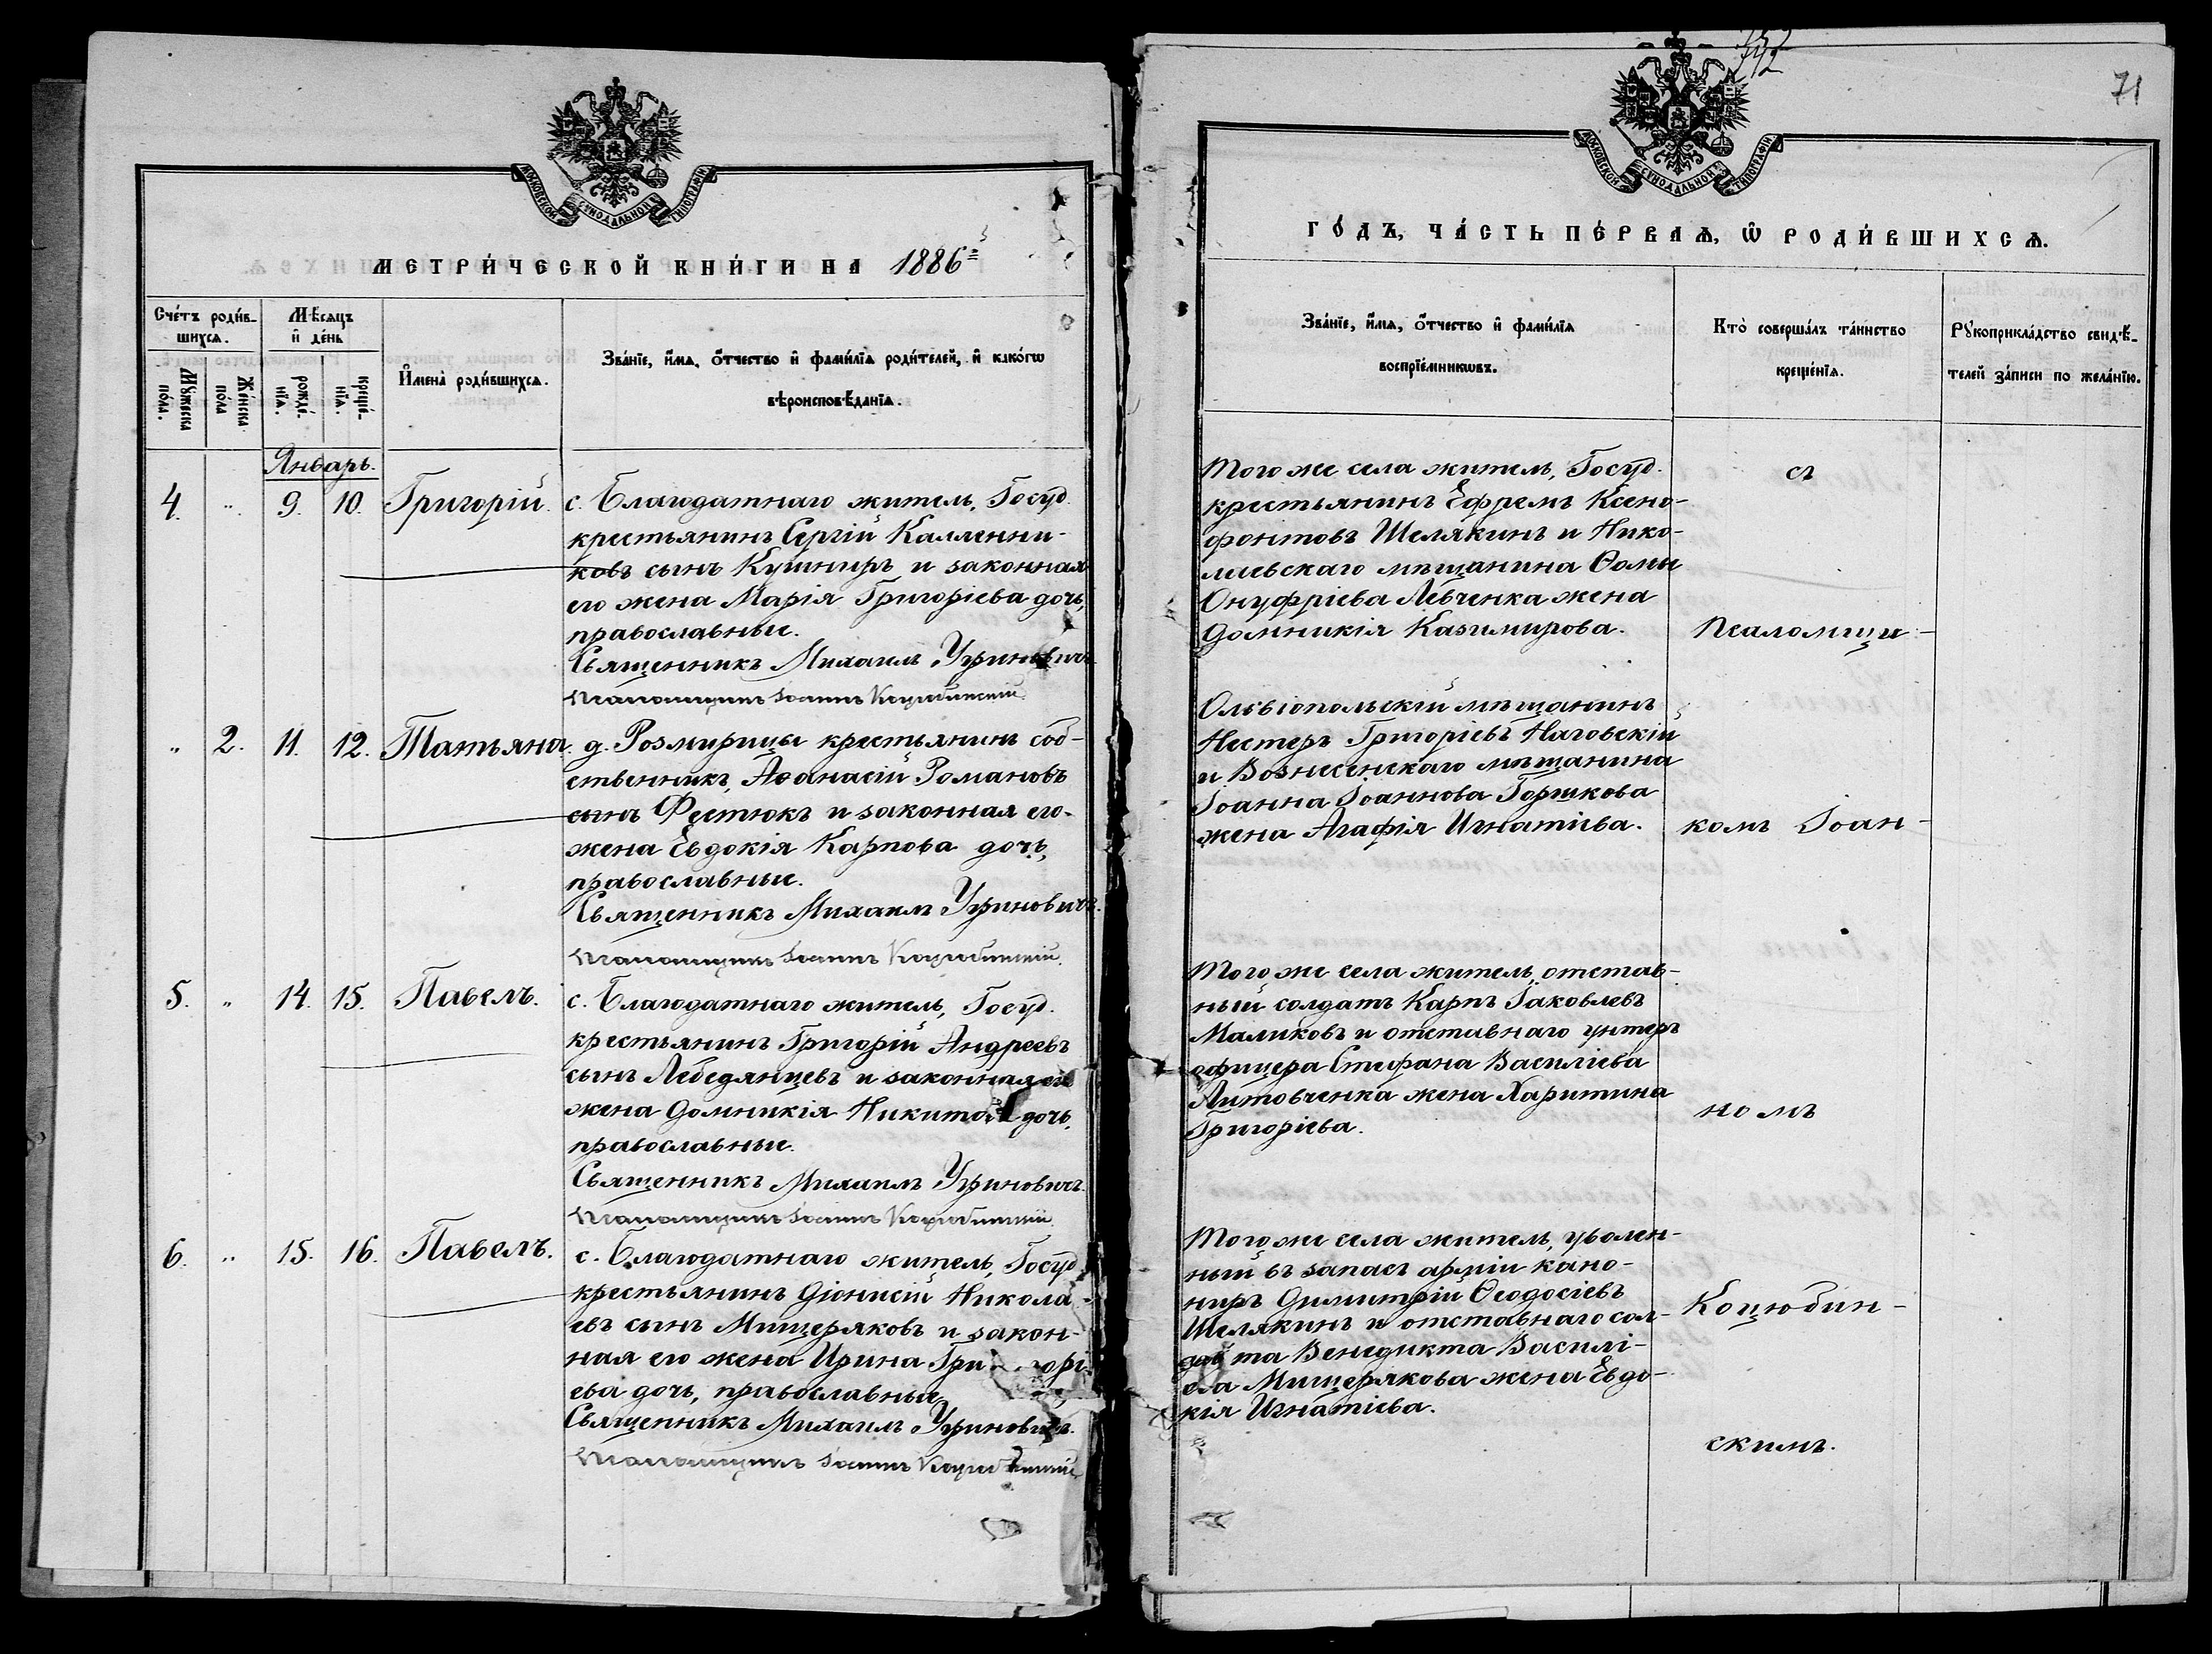 МОСКОВСКОЙ СУНОДАЛЬНОЙ ТИПОГРАФІИ.
МЕТРИ́ЧЕСКОЙ КНИ́ГИ НА 1886
Сче́тъ роди́в-
шихсѧ.
Мѣсѧцъ
и҆ де́нь
Мꙋ́жеска
по́ла.
Же́нска
по́ла
рожде́-
нїѧ.
креще́-
нїѧ.
И҆мена̀ роди́вшихсѧ.
Зва́нїе, и҆́мѧ, о҆́тчество и҆ фами́лїѧ роди́телей, и҆ како́гѡ
вѣроисповѣданїѧ.
Январь.
4. " 9. 10. Григорій. с. Благодатнаго житель, Госуд.
крестьянинъ Сергій Каллинни-
ковъ сынъ Кушниръ и законная
его жена Марія Григоріева дочь,
православные.
Священникъ Михаилъ Угриновичъ
Псаломщикъ Іоаннъ Коцюбинскій.
" 2. 11. 12. Татьяна. д. Розмирицы крестьянинъ соб-
ственникъ, Аѳанасій Романовъ
сынъ Фестюкъ и законная его
жена Евдокія Карпова дочь,
православные.
Священникъ Михаилъ Угриновичъ.
Псаломщикъ Іоаннъ Коцюбинскій.
5. " 14. 15. Павелъ. с. Благодатнаго житель, Госуд.
крестьянинъ Григорій Андреевъ
сынъ Лебедянцевъ и законная его
жена Домникія Никитова дочь,
православные.
Священникъ Михаилъ Угриновичъ.
Псаломщикъ Іоаннъ Коцюбинскій.
6. " 15. 16. Павелъ. с. Благодатнаго житель, Госуд.
крестьянинъ Діонисій Никола-
евъ сынъ Мищеряковъ и закон-
ная его жена Ирина Григорі-
ева дочь, православные,
Священникъ Михаилъ Угриновичъ.
Псаломщикъ Іоаннъ Коцюбинскій
742
71
МОСКОВСКОЙ СУНОДАЛЬНОЙ ТИПОГРАФІИ.
ГО́ДЪ, ЧА́СТЬ ПЕ́РВАѦ, Ѡ҆ РОДИ́ВШИХСѦ.
Зва́нїе, и҆́мѧ, о҆́тчество и҆ фами́лїѧ
воспрїе́мникѡвъ.
Кто̀ соверша́лъ та́инство
креще́нїѧ.
Рꙋкоприкла́дство свидѣ́-
телей за́писи по жела́нїю.
Того же села житель, Госуд.
крестьянинъ Ефремъ Ксено-
фонтовъ Шелякинъ и Нико-
лаевскаго мѣщанина Ѳомы
Онуфріева Левченка жена
Домникія Казимирова.
Ольвіопольскій мѣщанинъ
Нестеръ Григоріевъ Наговскій
и Вознесенскаго мѣщанина
Іоанна Іоаннова Горшкова
жена Агафія Игнатіева.
Того же села житель, отстав-
ный солдатъ Карпъ Іаковлевъ
Маликовъ и отставнаго унтеръ
офицера Стефана Василіева
Литовченка жена Харитина
Григоріева.
Того же села житель, уволен-
ный въ запасъ арміи кано-
ниръ Димитрій Ѳеодосіевъ
Шелякинъ и отставнаго сол-
дата Венедикта Василі-
ева Мищерякова жена Евдо-
кія Игнатіева.
съ
Псаломщи-
комъ Іоан-
номъ
Коцюбин-
скимъ.